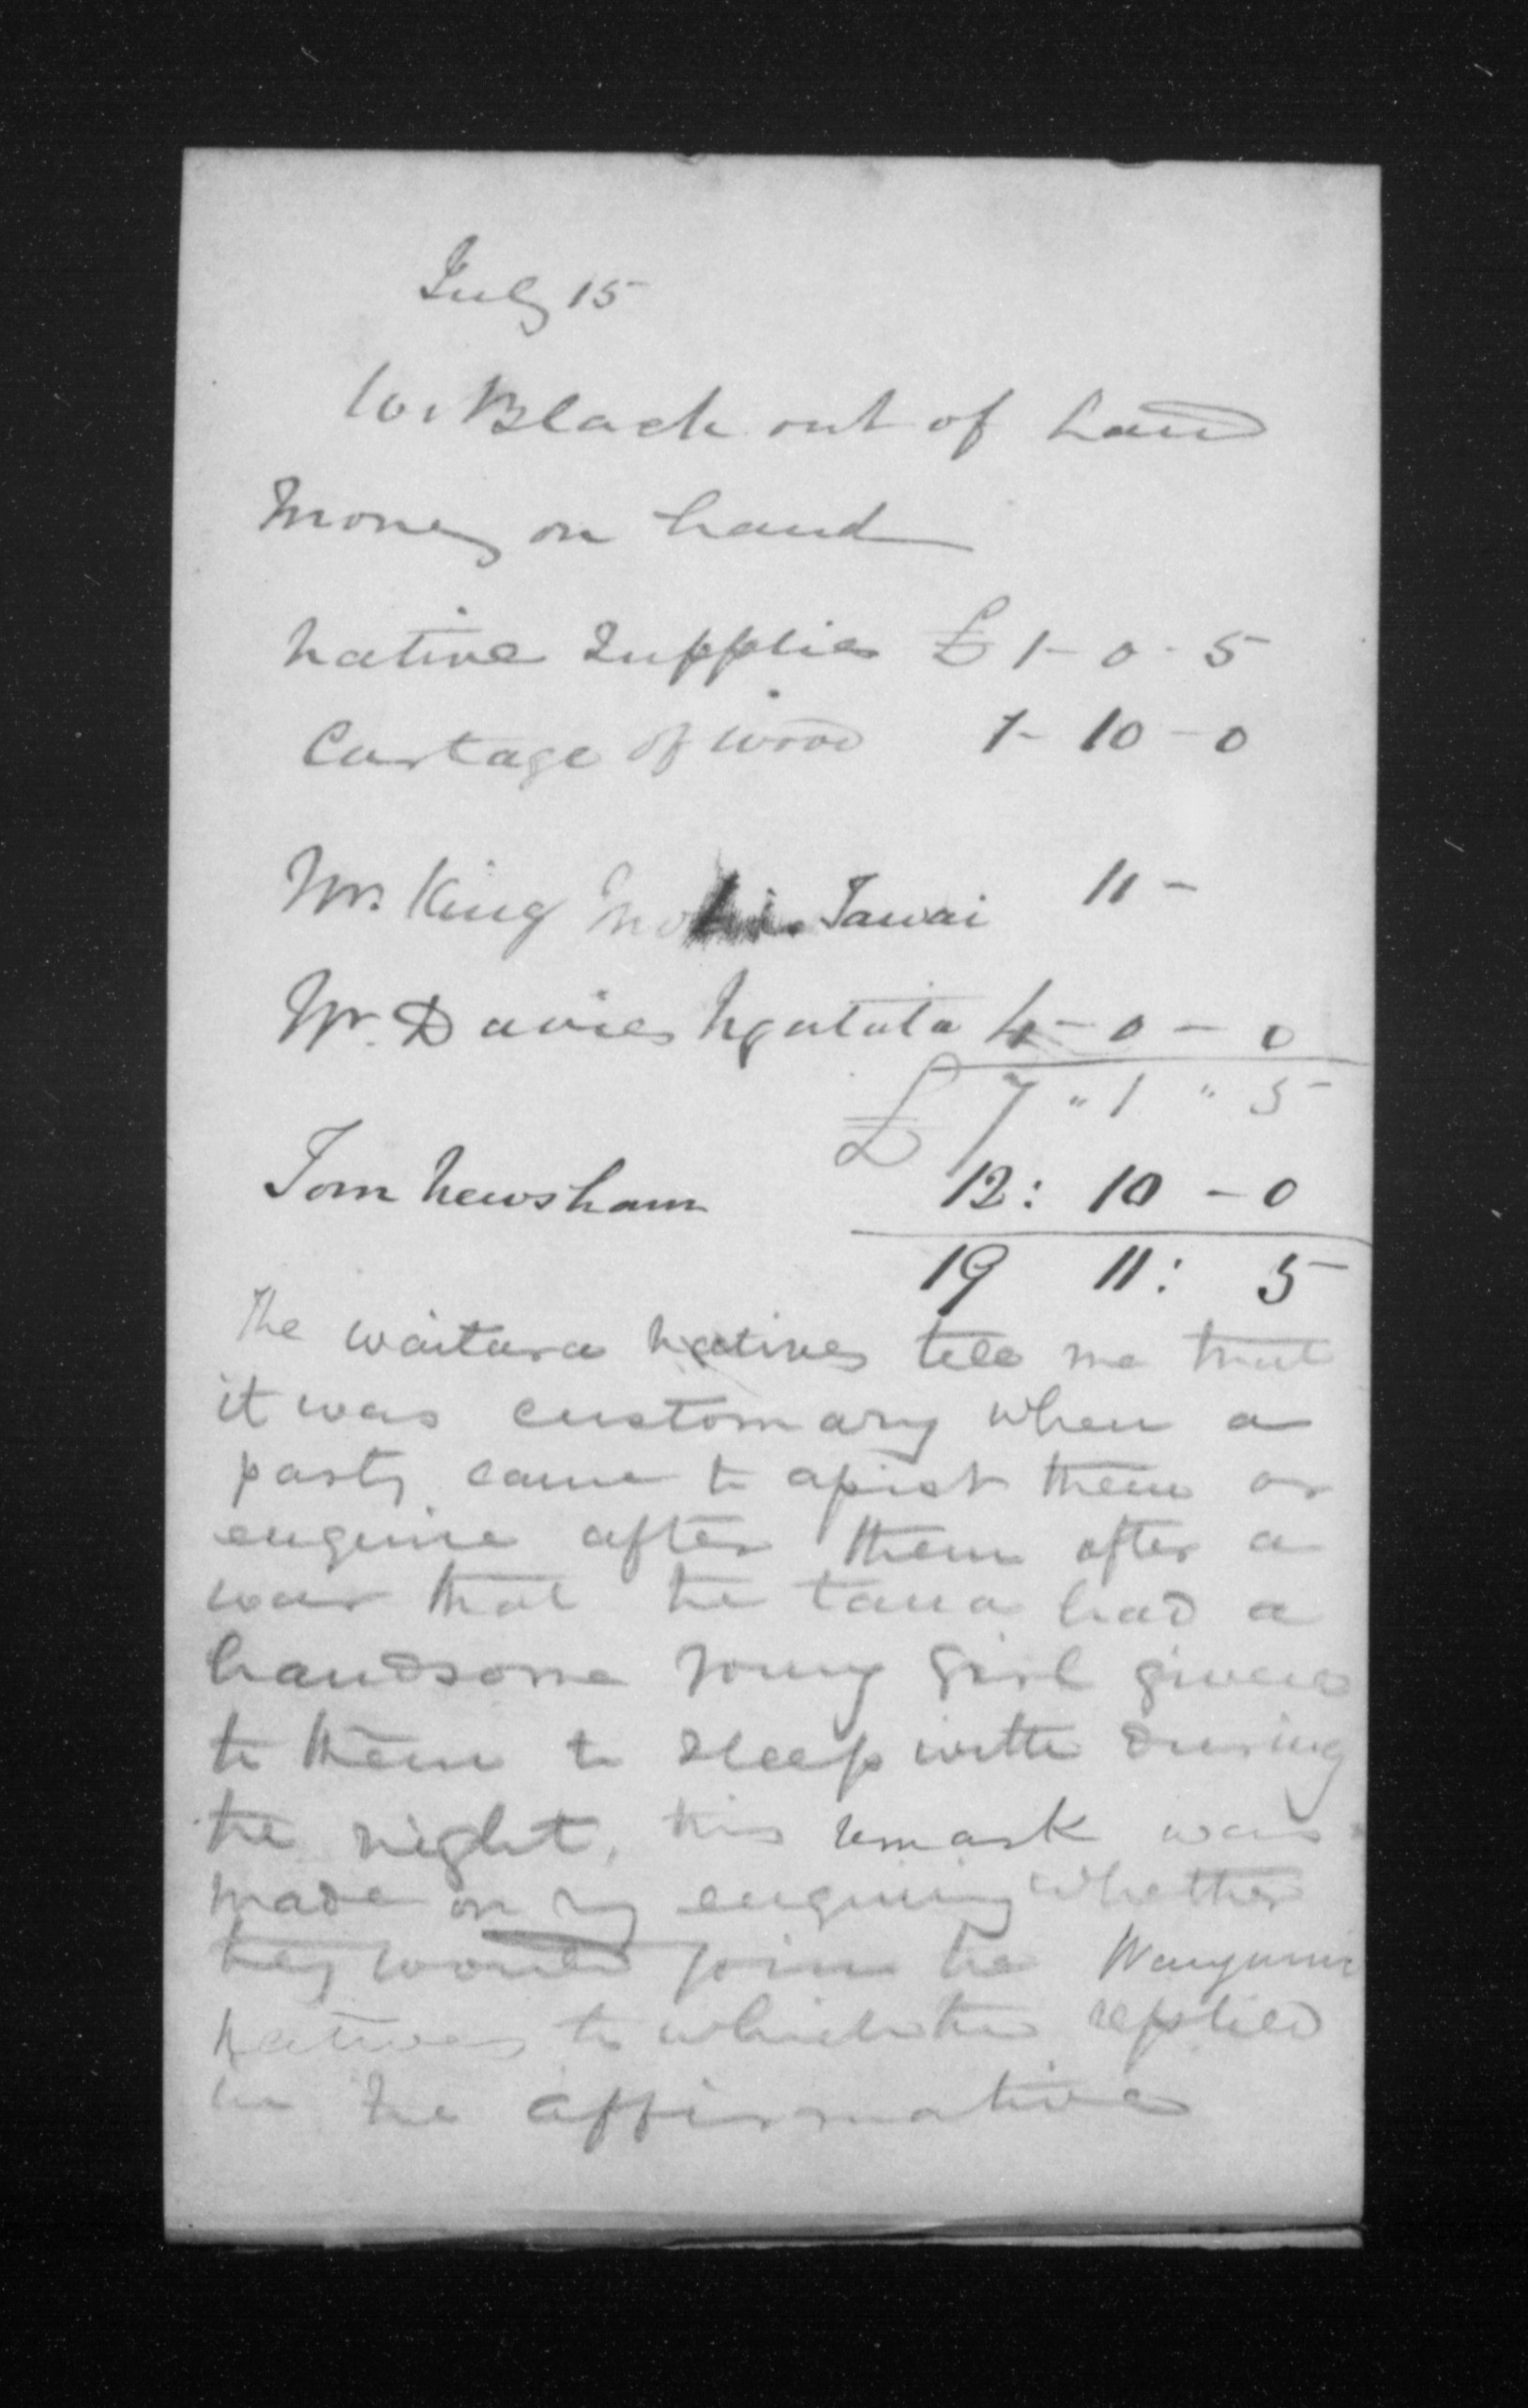 July 15
W. Black out of hand
Money on hand
Native Supplies £1-0-5
Cartage of wood 1-10-0
Mr. King Tawai 11-
Mr. Davies Ngatata 4-0-0
£ 7 " 1 " 5
Tom Newsham 12: 10 - 0
19 11: 5
The Waitara natives tell me that
it was customary when a
party came to assist them or
enquire after them after a
war that the taua had a
handsome young girl given
to them to sleep with during
the night, this remark was
made on my enquiring whether
they would join the Wanganui
natives to which the replied
in the affirmative